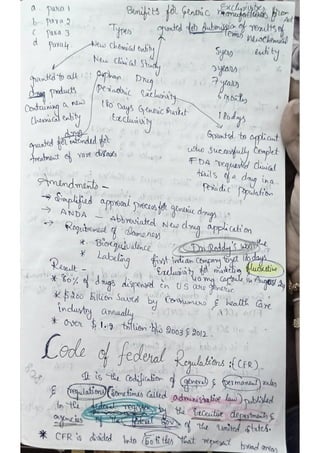 a. para 1
b. para 2
c para 3
d para 4
Benifits for generic manufacturers from act
Types
Exclusivities
granted for submission of results of
New chemical entity
New Clinical Study
Orphan Drug
Pediatric Exclusivity
180 Days Generic Market
Exclusivity
5 years
3 years
7 years
6 months
180 days
entity
granted to all
drug products
Containing a new
Chemical entity
granted for intended for
treatment of rare diseases
Granted to applicant
who successfully complet
FDA requested Clinical
trails of a drug in a
pediatric population
Amendments –
→ Simplified approval process for generic drugs
→ ANDA – Abbreviated New drug application
→ Requirement of Sameness
* Bioequivalence
* Labeling
Dr. Reddy's was the
first indian company that 180 days
Exclusivity for marketing fluoxetine
40mg capsule in August
Result –
* 80% of drugs dispensed in US are generic
* $200 billion saved by consumers & health care
industry annually
* Over $1.2 trillion b/w 2003 & 2012.
Code of federal Regulations :(CFR)
It is the codification of general & permanent rules
& regulations (sometimes called administrative law) published
In the federal register by the executive departments &
agencies of the federal Gov of the United States.
* CFR is divided Into 50 titles that represent broad areas